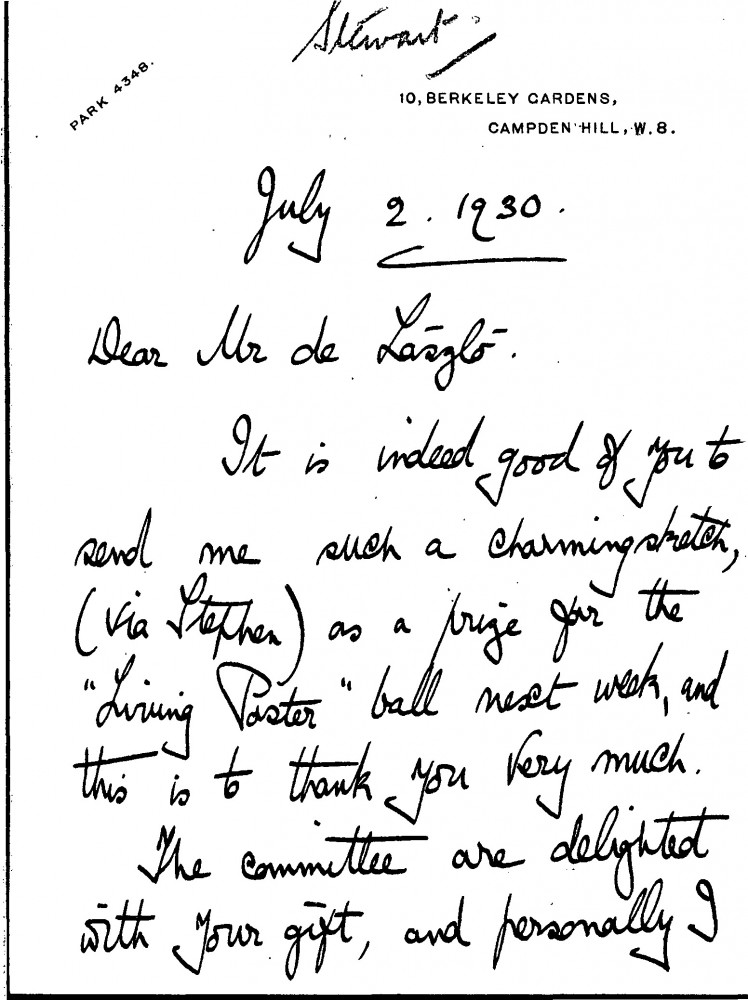 Stewart.
PARK 4348.
10, BERKELEY GARDENS,
CAMPDEN HILL, W.8.
July 2. 1930.
Dear Mr de László.
It is indeed good of you to
send me such a charming sketch,
(via Stephen) as a prize for the
"Living Poster" ball next week, and
this is to thank you very much.
The committee are delighted
with your gift, and personally I